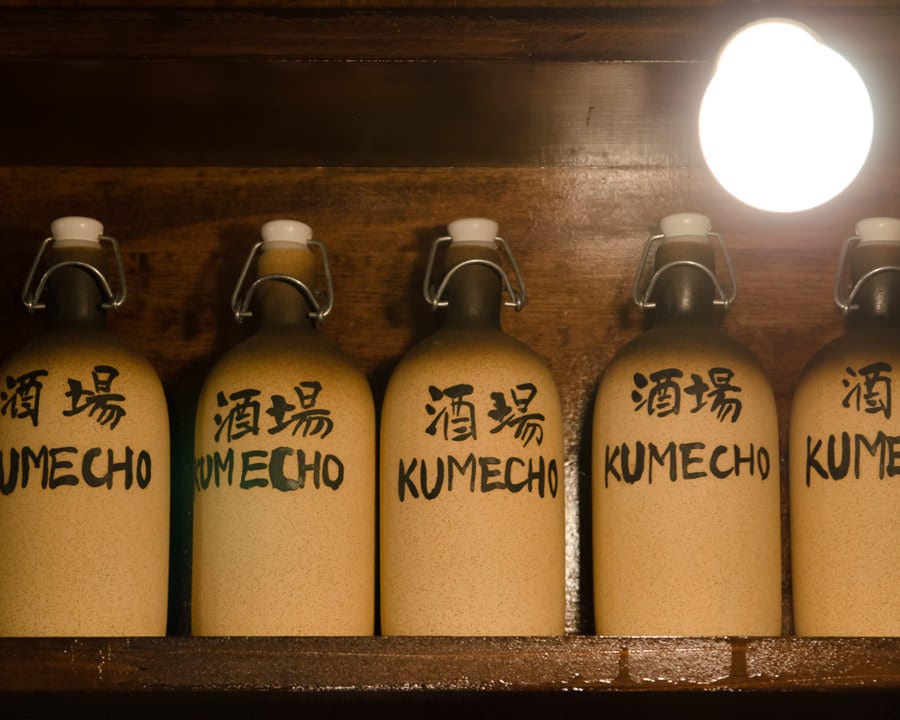 酒場
KUMECHO
酒場
KUMECHO
酒場
KUMECHO
酒場
KUMECHO
酒
KUME